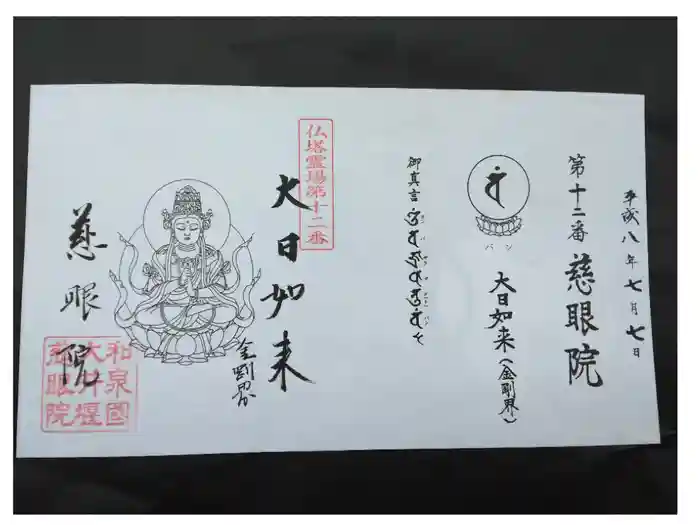 平成八年七月七日
第十二番 慈眼院
バン
大日如来(金剛界)
御真言
仏塔霊場第十二番
大日如来
金剛界
慈眼院
和泉國
大井堰
慈眼院